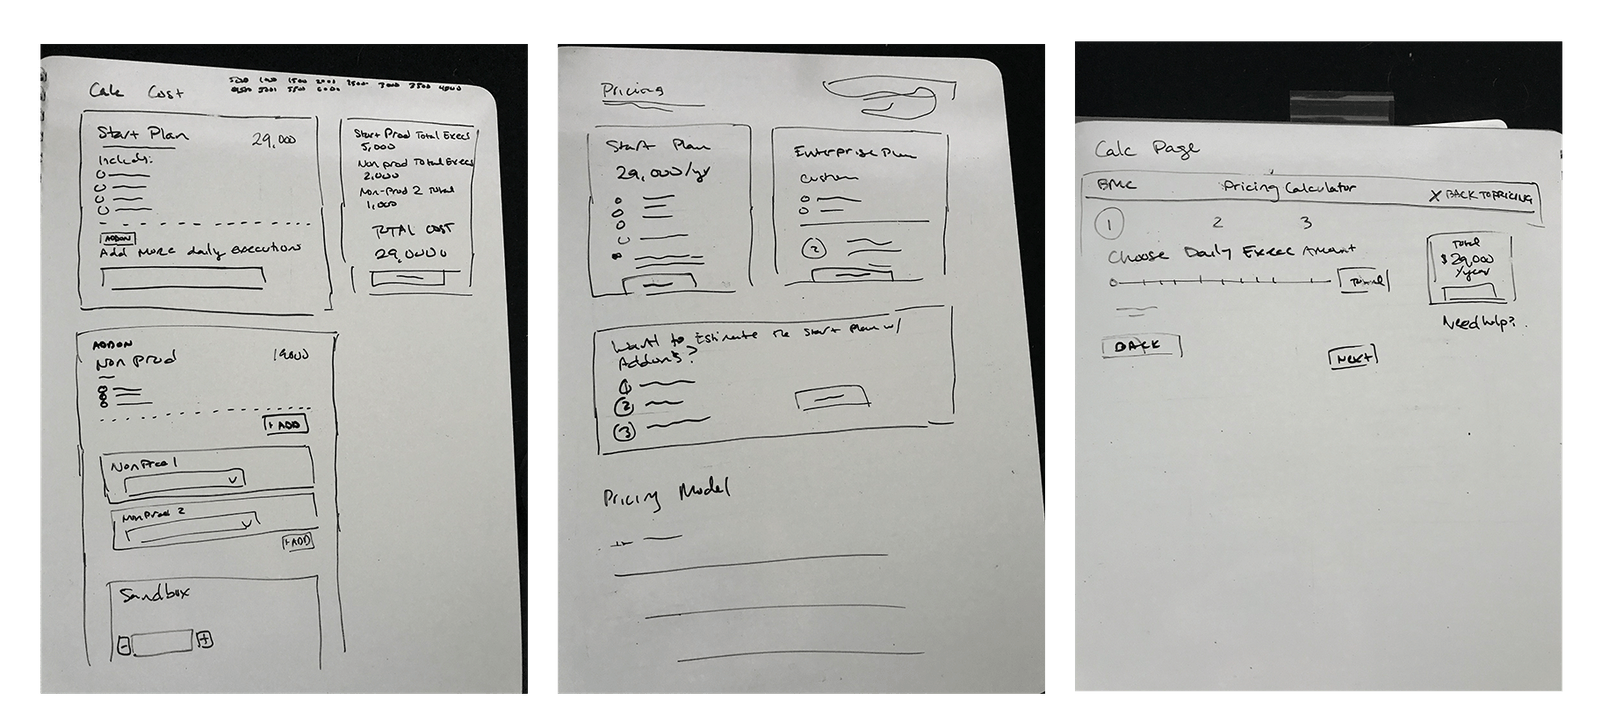 Calc Cost
500 1000 1500 2000 2500 3000 3500 4000
4500 5001 5500 6000
Start Plan 29,000
Include:
ADDON
Add More daily executions
Start Prod Total Execs
5,000
Non prod Total Execs
2,000
Non-Prod 2 Total
1,000
TOTAL COST
29,0000
ADDON
Non prod
+ ADD
Non Prod 1
Non Prod 2
+ ADD
Sandbox
- +
Pricing
Start Plan
29,000/yr
Enterprise Plan
Custom
2
Want to Estimate the Start Plan w/
Addons?
1
2
3
Pricing Model
Calc Page
BMC Pricing Calculator X BACK TO PRICING
1 2 3
Choose Daily Exec Amount
Total
$29,000
/year
Need help?
BACK
NEXT